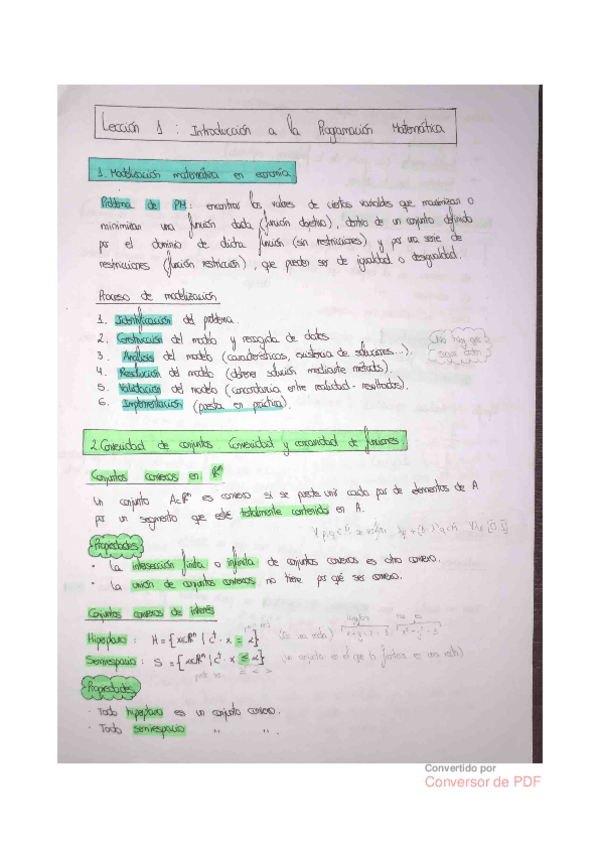 Lección 1 : Introducción a la Programación Matemática
1. Modelización matemática en economía
Problema de PM: encontrar los valores de ciertas variables que maximizan o
minimizan una función dada (función objetivo), dentro de un conjunto definido
por el dominio de dicha función (sin restricciones) y por una serie de
restricciones (función restricción), que pueden ser de igualdad o desigualdad.
Proceso de modelización
1. Identificación del problema.
2. Construcción del modelo y recogida de datos.
3. Análisis del modelo (características, existencia de soluciones...).
No hay que
4. Resolución del modelo (obtener solución mediante métodos).
5. Validación del modelo (concordancia entre realidad - resultados).
6. Implementación (puesta en práctica).
2. Convexidad de conjuntos. Convexidad y concavidad de funciones.
Conjuntos convexos en ℝⁿ
Un conjunto A⊂ℝⁿ es convexo si se puede unir cada par de elementos de A
por un segmento que esté totalmente contenido en A.
Propiedades
· La intersección finita o infinita de conjuntos convexos es otro convexo.
· La unión de conjuntos convexos no tiene por qué ser convexo.
Conjuntos convexos de interés
Hiperplano : H = {x∈ℝⁿ | cᵗ · x = α} (Es una recta)
Semiespacio : S = {x∈ℝⁿ | cᵗ · x ≤ α} (un conjunto en el que la frontera es una recta)
Propiedades
· Todo hiperplano es un conjunto convexo.
· Todo semiespacio " " " .
Convertido por
Conversor de PDF